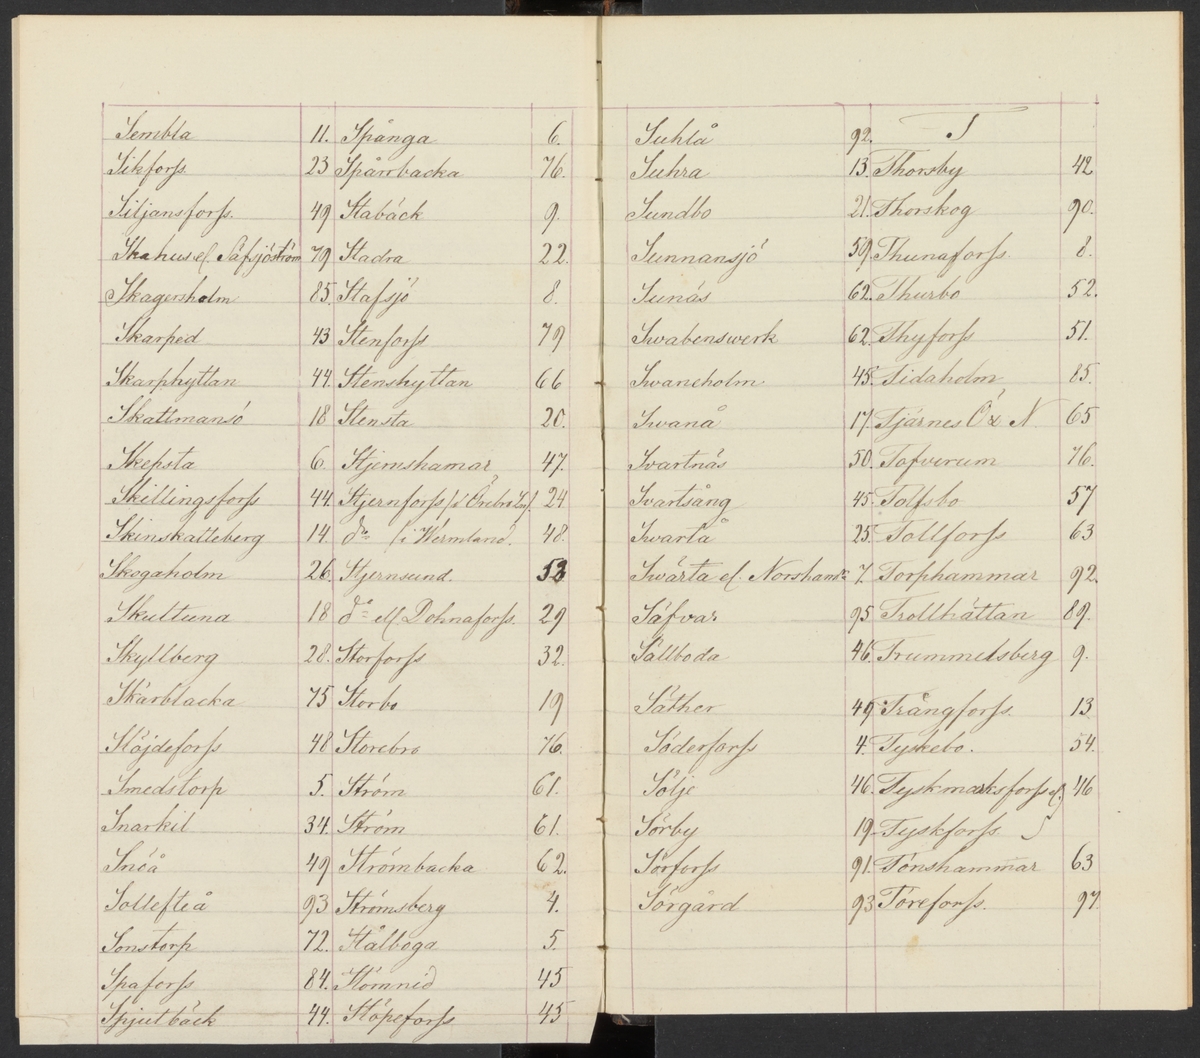 Sembla 11.
Sikforss 23
Siljansforss. 49
Skahus el. Säfsjöström 79
Skagersholm 85.
Skarped 43
Skarphyttan 44.
Skattmansö 18
Skepsta 6.
Skillingsforss 44.
Skinskatteberg 14.
Skogaholm 26.
Skultuna 18
Skyllberg 28.
Skärblacka 75
Slöjdeforss 48
Smedstorp 5.
Snarkil 34.
Snöå 49
Sollefteå 93
Sonstorp 72.
Spaforss 84.
Spjutbäck 44.
Spånga 6.
Spårrbacka 76.
Stabäck 9.
Stadra 22.
Stafsjö 8.
Stenforss 79
Stenshyttan 66
Stensta 20.
Stjernshamar 47.
Stjernforss (i Örebro Län). 24
do (i Wermland. 48.
Stjernsund. 53
do ell Dohnaforss. 29
Storforss 32.
Storbo 19
Storebro 76.
Ström 61.
Ström 61.
Strömbacka 62.
Strömsberg 4.
Stålboga 5.
Stömnid 45
Stöpeforss 45
Suhlå 92.
Suhra 13.
Sundbo 21.
Sunnansjö 59.
Sunäs 62.
Swabenswerk 62.
Swaneholm 45.
Swanå 17.
Svartnäs 50.
Svartsång 45.
Swartå 25.
Swärta el. Norshamr 7.
Säfvar 95
Sällboda 46.
Säther 49
Söderforss 4.
Sölje 46.
Sörby 19
Sörforss 91.
Sörgård 93
T
Thorsby 42
Thorskog 90.
Thunaforss. 8.
Thurbo 52.
Thyforss 51.
Tidaholm 85.
Tjärnes Ö & N. 65
Tofverum 76.
Tolfsbo 57
Tollforss 63
Torphammar 92.
Trollhättan 89.
Trummelsberg 9.
Trångforss. 13
Tyskebo. 54.
Tyskmarksforss el. 46
Tyskforss
Tönshammar 63
Töreforss. 97